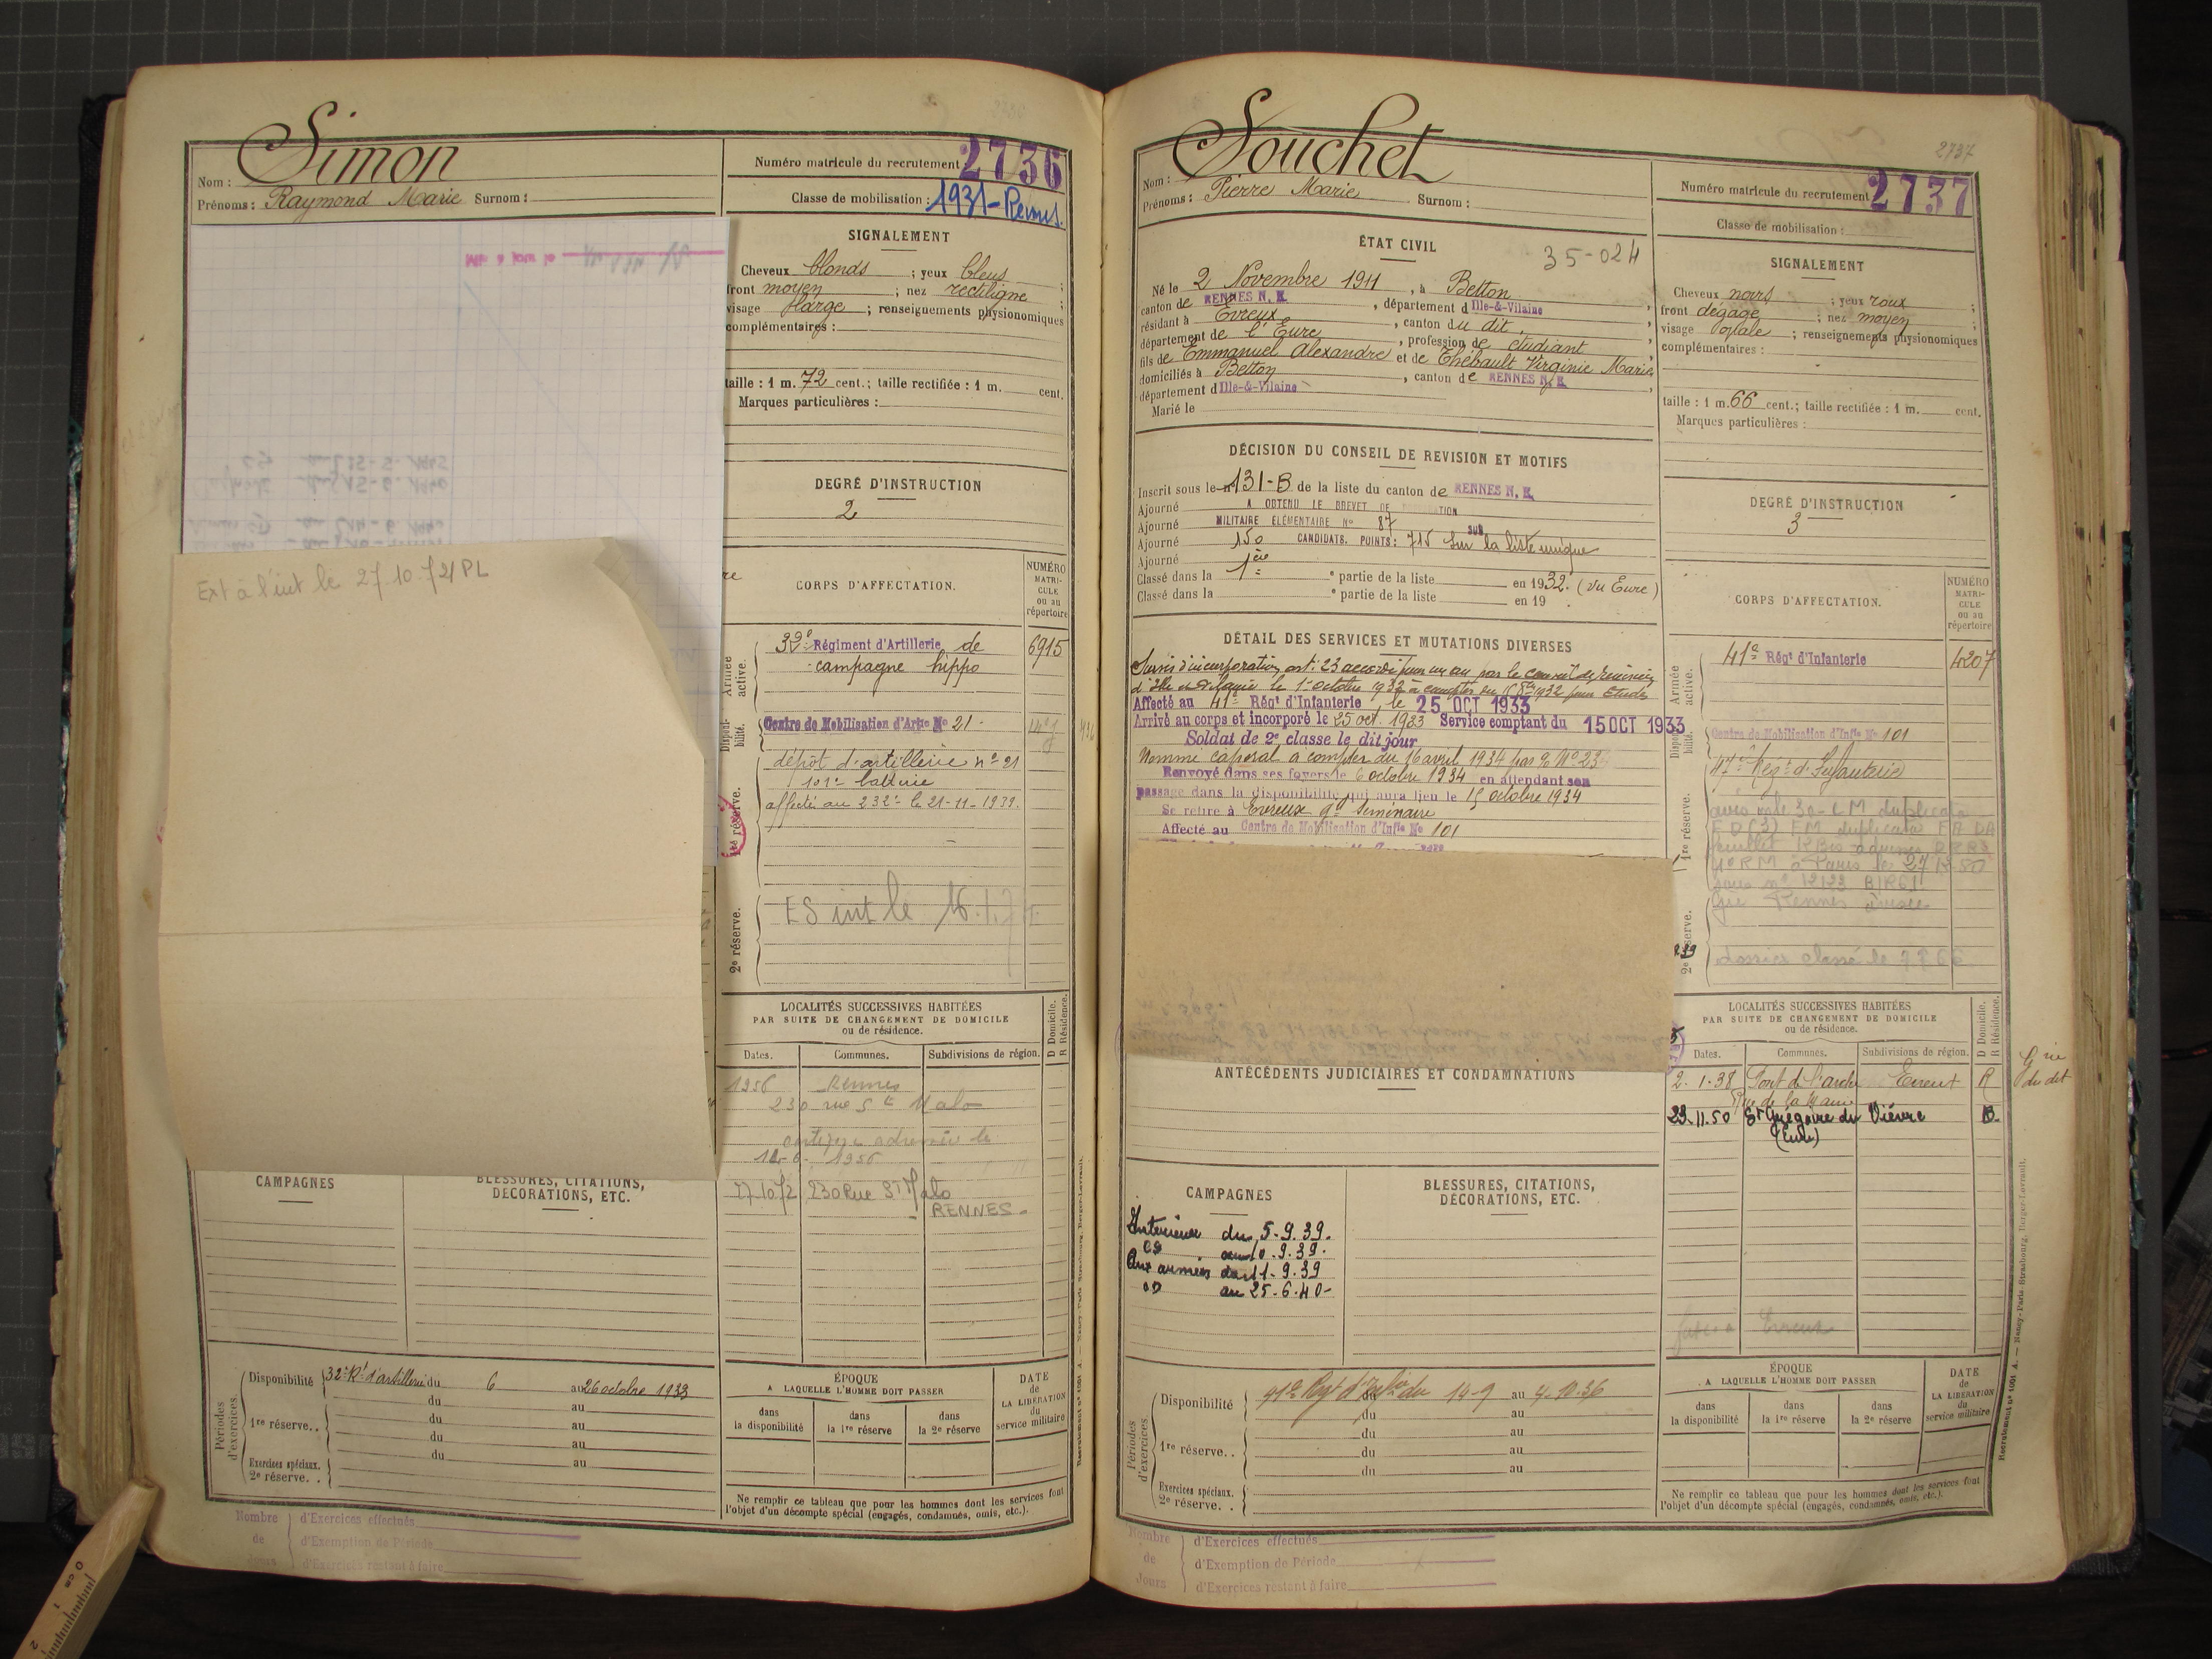 Simon
Nom :
Prénoms : Raymond Marie Surnom :
Numéro matricule du recrutement 2736
Classe de mobilisation : 1931-Rennes
SIGNALEMENT
Cheveux blonds ; yeux bleus ;
front moyen ; nez rectiligne ;
visage large ; renseignements physionomiques
complémentaires :
taille : 1 m. 72 cent. ; taille rectifiée : 1 m. cent.
Marques particulières :
DEGRÉ D'INSTRUCTION
2
Ext à l'int le 27.10.72/PL
CORPS D'AFFECTATION.
NUMÉRO MATRICULE ou au répertoire
Armée active.
32e Régiment d'Artillerie de 6915
campagne hippo
Disponibilité.
Centre de Mobilisation d'Artie No 21
dépôt d'artillerie no 21
101e batterie
affecté au 232e le 21-11-1939.
1re réserve.
2e réserve.
ES int le 16.1.7
LOCALITÉS SUCCESSIVES HABITÉES
PAR SUITE DE CHANGEMENT DE DOMICILE
ou de résidence.
Dates. Communes. Subdivisions de région. D Domicile. R Résidence.
1956 Rennes
230 rue St Malo
1956
27.10.72 230 Rue St Malo
RENNES
CAMPAGNES
BLESSURES, CITATIONS,
DÉCORATIONS, ETC.
Périodes d'exercices.
Disponibilité 32e Rt d'artillerie du 6 au 26 octobre 1933
du au
1re réserve. . du au
du au
du au
Exercices spéciaux.
2e réserve. .
ÉPOQUE
A LAQUELLE L'HOMME DOIT PASSER
dans la disponibilité
dans la 1re réserve
dans la 2e réserve
DATE de LA LIBÉRATION du service militaire
Ne remplir ce tableau que pour les hommes dont les services font
l'objet d'un décompte spécial (engagés, condamnés, omis, etc.).
Nombre de Jours
d'Exercices effectués
d'Exemption de Période
d'Exercices restant à faire
2737
Souchet
Nom :
Prénoms : Pierre Marie Surnom :
Numéro matricule du recrutement 2737
Classe de mobilisation :
ÉTAT CIVIL
35-024
Né le 2 Novembre 1911, à Betton
canton de RENNES N. E. , département d Ille-&-Vilaine ,
résidant à Évreux , canton du dit ,
département de l'Eure , profession de étudiant ,
fils de Emmanuel Alexandre et de Thébault Virginie Marie
domiciliés à Betton , canton de RENNES N. E. ,
département d Ille-&-Vilaine
Marié le
SIGNALEMENT
Cheveux noirs ; yeux roux ;
front dégagé ; nez moyen ;
visage ovale ; renseignements physionomiques
complémentaires :
taille : 1 m. 66 cent. ; taille rectifiée : 1 m. cent.
Marques particulières :
DÉCISION DU CONSEIL DE REVISION ET MOTIFS
Inscrit sous le n° 131-B de la liste du canton de RENNES N. E.
Ajourné A OBTENU LE BREVET DE
Ajourné MILITAIRE ÉLÉMENTAIRE No 87 SUR
Ajourné 150 CANDIDATS. POINTS : 715 sur la liste unique
Ajourné
Classé dans la 1ère e partie de la liste en 1932. (Vu Eure)
Classé dans la e partie de la liste en 19 .
DEGRÉ D'INSTRUCTION
3
DÉTAIL DES SERVICES ET MUTATIONS DIVERSES
Sursis d'incorporation art. 23 accordé pour un an par le conseil de révision
d'Ille et Vilaine le 1er octobre 1932 à compter du 15 8bre 1932 pour études
Affecté au 41e Régt d'Infanterie, le 25 OCT 1933
Arrivé au corps et incorporé le 25 oct. 1933 Service comptant du 15 OCT 1933
Soldat de 2e classe le dit jour
Nommé caporal à compter du 16 avril 1934
Renvoyé dans ses foyers le 6 octobre 1934 en attendant son
passage dans la disponibilité qui aura lieu le 15 octobre 1934
Se retire à Évreux gd Séminaire
Affecté au Centre de Mobilisation d'Infie No 101
CORPS D'AFFECTATION.
NUMÉRO MATRICULE ou au répertoire
Armée active.
41e Régt d'Infanterie 4207
Disponibilité.
Centre de Mobilisation d'Infie No 101
47e Régt d'Infanterie
1re réserve.
2e réserve.
dossier classé le
ANTÉCÉDENTS JUDICIAIRES ET CONDAMNATIONS
LOCALITÉS SUCCESSIVES HABITÉES
PAR SUITE DE CHANGEMENT DE DOMICILE
ou de résidence.
Dates. Communes. Subdivisions de région. D Domicile. R Résidence.
2.1.38 Pont de l'arche Evreux R
23.11.50 St Grégoire du Vièvre D
(Eure)
CAMPAGNES
BLESSURES, CITATIONS,
DÉCORATIONS, ETC.
Intérieur du 5.9.39.
au 10.9.39.
Aux armées du 11.9.39
au 25.6.40
Périodes d'exercices.
Disponibilité 41e Régt d'Infie du 14-9 au 4.10.36
du au
1re réserve. . du au
du au
du au
Exercices spéciaux.
2e réserve. .
ÉPOQUE
A LAQUELLE L'HOMME DOIT PASSER
dans la disponibilité
dans la 1re réserve
dans la 2e réserve
DATE de LA LIBÉRATION du service militaire
Ne remplir ce tableau que pour les hommes dont les services font
l'objet d'un décompte spécial (engagés, condamnés, omis, etc.).
Nombre de Jours
d'Exercices effectués
d'Exemption de Période
d'Exercices restant à faire